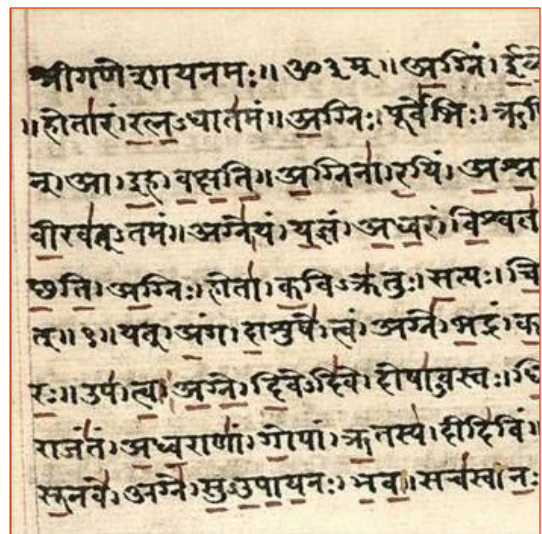 श्रीगणेशायनमः॥ॐ३म्॥अग्निं।
॥होतारं।रत्नऽधातमं॥अग्निः।पूर्वेभिः।ऋषि
न्।आ।इह।वक्षति॥अग्निना।रयिं।अश्न
वीरवत्ऽतमं॥अग्ने।यं।यज्ञं।अध्वरं।विश्वत
छति।अग्निः।होता।कविऽक्रतुः।सत्यः।चि
त्॥१॥यत्।अंग।दाशुषे।त्वं।अग्ने।भद्रं।क
रः॥उप।त्वा।अग्ने।दिवेऽदिवे।दोषाऽवस्तः।धि
राजंतं।अध्वराणां।गोपां।ऋतस्य।दीदिविं।
सूनवे।अग्ने।सुऽउपायनः।भव।सचस्व।नः